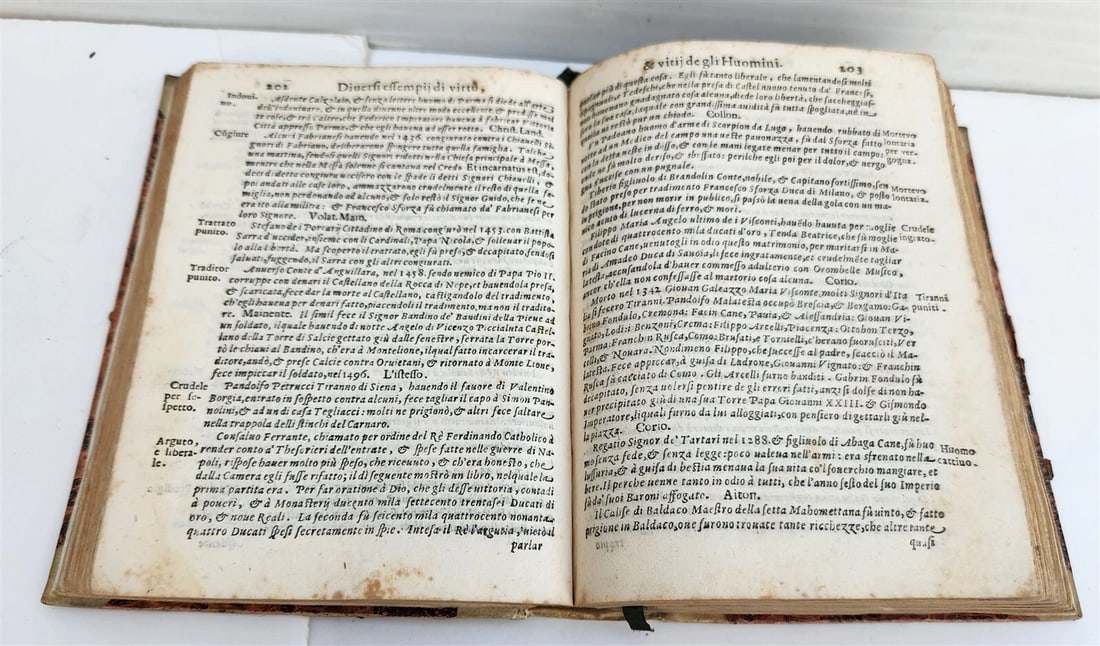 202 Diuersi essempij di vittù,
Indoui-
no.
Asdente Calzolaio, & senza lettere huomo di Parma si diede all'arte
dell'indouinare, & in quella diuenne oltre modo eccellente, & predisse mol
te cose, & trà l'altre, che Federico Imperatore hauea à fabricar Vittoria
Città appresso Parma, & che egli hauea ad esser rotto. Christ. Land.
Cōgiure
Alcuni Fabrianesi hauendo nel 1436. congiurato contra i Chianelli Si-
gnori di Fabriano, deliberarono spingere tutta quella famiglia. Talche
una martina, sendosi quelli Signori ridotti nella Chiesa principale à Messa,
mentre che nella Messa solenne si cantaua nel Credo Et incarnatus est, do-
dici detta congiura uccisero con le spade li detti Signori Chianelli, &
poi andati alle case loro, ammazzarono crudelmente il resto di quella fa-
miglia, non perdonando ad alcuno, & solo restò il Signor Guido, che se ne
era ito alla militia: & Francesco Sforza fù chiamato da' Fabrianesi per
loro Signore. Volat. Main.
Trattato
punito.
Stefano de' Porcari Cittadino di Roma congiurò nel 1453. con Battista
Sarra d'uccider, insieme con li Cardinali, Papa Nicola, & solleuar il popo-
lo alla libertà. Ma scoperto il trattato, egli fù preso, & decapitato, sendosi
saluati, fuggendo, il Sarra con gli altri congiurati.
Traditor
punito.
Anuerso Conte d'Anguillara, nel 1458. sendo nemico di Papa Pio II,
corruppe con denari il Castellano della Rocca di Nepe, et hauendola presa,
& scaricata, fece dar la morte al Castellano, castigandolo del tradimento,
ch'egli hauena per denari fatto, piacendoli il tradimento, ma non il tradito-
re. Mainente. Il simil fece il Signor Bandino de' Baudini della Pieue ad
un soldato, il quale hauendo di notte Angelo di Vicenzo Piccialuta Castel-
lano della Torre di Salcie gettato giù dalle fenestre, serrata la Torre por-
tò le chiaui al Bandino, ch'erà à Montelione, ilqual fatto incarcerar il tra-
ditore, andò, & prese Salcie contro Oruietani, & ritornato à Monte Lione,
fece impiccar il soldato, nel 1496. L'istesso.
Crudele
per so-
spetto.
Pandolfo Petrucci Tiranno di Siena, hauendo il fauore di Valentino
Borgia, entrato in sospetto contra alcuni, fece tagliar il capo à Simon Pan-
nolini, & ad un di casa Tegliacci: molti ne prigionò, & altri fece saltare
nella trappola delli stinchi del Carnaro.
Arguto,
e libera-
le.
Consaluo Ferrante, chiamato per ordine del Rè Ferdinando Catholico à
render conto à Thesorieri dell'entrate, & spese fatte nelle guerre di Na-
poli, rispose hauer molto più speso, che riceuuto, & ch'era honesto, che
dalla Camera egli fusse rifatto; il dì seguente mostrò un libro, nel quale la
prima partita era. Per far oratione à Dio, che gli desse uittoria, contadi
à poueri, & à Monasterij ducento mila settecento trentasei Ducati di
oro, & noue Reali. La seconda fù seicento mila quattrocento nonanta
quattro Ducati spesi secretamente in spie. Intesa il Rè l'argutia, uietò il
parlar
& vitij de gli Huomini. 203
più di questa cosa. Egli fù tanto liberale, che lamentandosi molti
Spagnuoli, e Tedeschi, che nella presa di Castel nuouo tenuto da' Francesi,
non haueano guadagnato cosa alcuna, diede loro libertà, che saccheggias-
casa sua, laquale con grandissima auidità fù tutta spogliata, nè in
restò pur un chiodo. Collon.
Morte vo
lontaria
per ver-
gogna.
huomo d'arme di Scorpion da Lugo, hauendo rubbato di
ad un Medico del campo una ueste pauonazza, fù dal Sforza fatto
con detta ueste in dosso, & con le mani legate menar per tutto il campo:
ne fù molto deriso, & sbeffato: perilche egli poi per il dolor, & uergo
gna s'uccise con un pugnale.
Morte vo
lontaria.
Tiberto figliuolo di Brandolin Conte, nobile, & Capitano fortissimo, sen
do stato preso per tradimento Francesco Sforza Duca di Milano, & posto
in prigione, per non morir in publico, si passò la uena della gola con un ma-
nico acuto di lucerna di ferro, & morì.
Crudele
ingrato.
Filippo Maria Angelo ultimo de i Visconti, hauēdo hauuta per moglie
con dote di quattrocento mila ducati d'oro, Tenda Beatrice, che fù moglie
di Facino Cane, uenutogli in odio questo matrimonio, per maritarsi in Ma-
ria di Amadeo Duca di Sauoia, li fece ingratamente, et crudelmēte tagliar
la testa, accusandola d'hauer commesso adulterio con Orombelle Musico,
ancor ch'ella non confessasse al martorio cosa alcuna. Corio.
Tiranni
puniti.
Morto nel 1342 Giouan Galeazzo Maria Visconte, molti Signori d'Ita
lia si fecero Tiranni. Pandolfo Malatesta occupò Brescia, & Bergamo: Ga-
brino Fondulo, Cremona: Facin Cane, Pauia, & Alessandria: Giouan Vi-
gnato, Lodi: Benzoni, Crema: Filippo Arcelli, Piacenza: Ottobon Terzo,
Parma: Franchin Rusca, Como: Brusati, e Tornielli, c'herano fuorusciti, Ver
celli, & Nouara. Nondimeno Filippo, che successe al padre, scacciò il Ma-
latesta. Fece appiccar, à guisa di Ladrone, Giouanni Vignato: & Franchin
Rusca fù cacciato di Como. Gli Arcelli furno banditi. Gabrin Fondulo fù
decapitato, senza uolersi pentire de gli errori fatti, anzi si dolse di non ha-
uer precipitato giù da una sue Torre Papa Giouanni XXIII. & Gismondo
Imperatore, liquali furno da lui alloggiati, con pensiero di gettarli giù nel-
la piazza. Corio.
Huomo
cattiuo.
Regatio Signor de' Tartari nel 1288. & figliuolo di Abaga Cane, fù huo
mo senza fede, & senza legge: poco ualeua nell'armi: era sfrenato nella
lussuria, & à guisa di bestia menaua la sua uita co'l souerchio mangiare, et
bere. Il perche uenne tanto in odio à tutti, che l'anno sesto del suo Imperio
fù da' suoi Baroni affogato. Aiton.
Il Calife di Baldaco Maestro della setta Mahomettana fù uinto, & fatto
prigione in Baldaco, oue furono trouate tante ricchezze, che altre tante
quasi